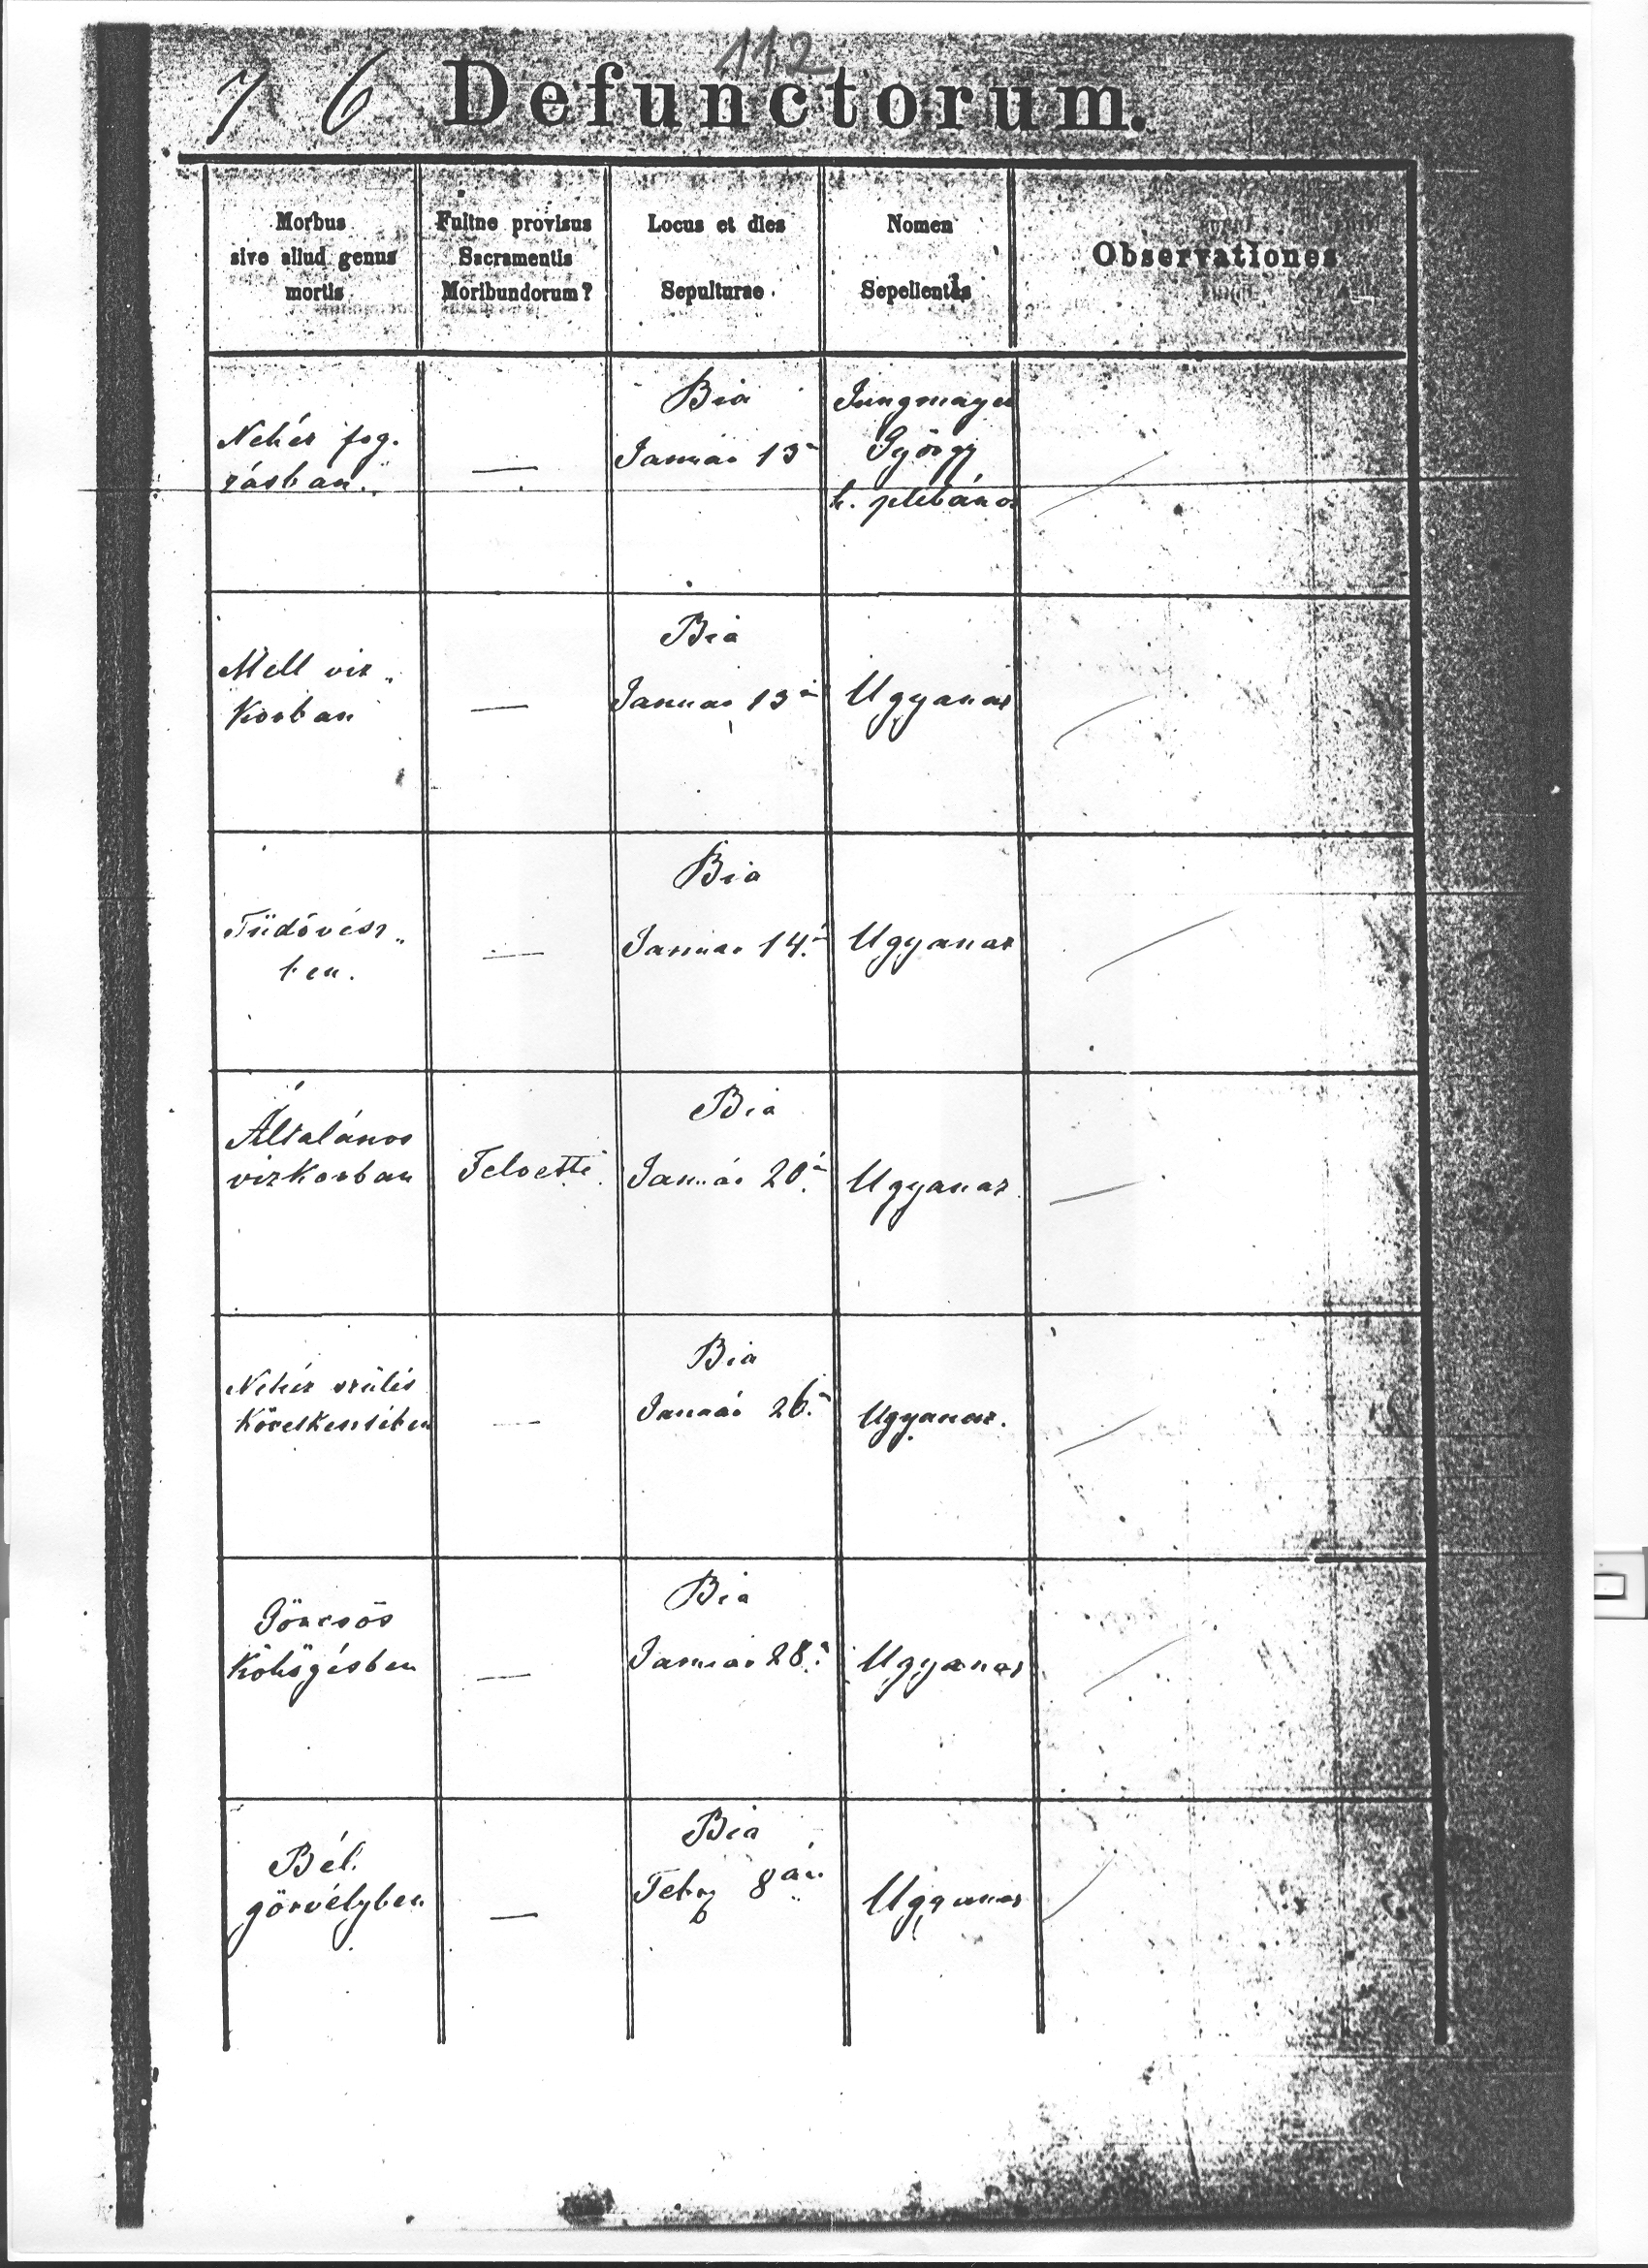 112
7 6 Defunctorum.
Morbus
sive aliud genus
mortis
Fuitne provisus
Sacramentis
Moribundorum?
Locus et dies
Sepulturae
Nomen
Sepelientis
Observationes
Nehéz fog.
zásban.
—
Bia
Január 13
Jungmayer
György
h. plébános
Mell viz„
korban
—
Bia
Január 13
Ugyanaz
Tüdővész„
ben.
—
Bia
Január 14.
Ugyanaz
Általános
vizkorban
Felvette
Bia
Január 20.
Ugyanaz
Nehéz szülés
következtében
—
Bia
Január 26.
Ugyanaz.
Görcsös
köhögésben
—
Bia
Január 28.
Ugyanaz
Bél.
görvélyben
—
Bia
8án
Ugyanaz